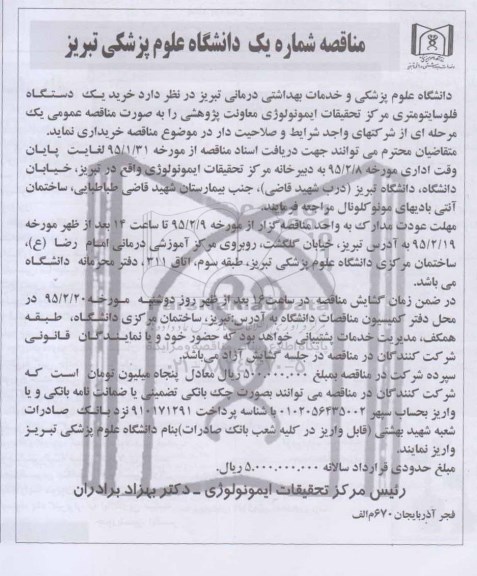 مناقصه شماره یک دانشگاه علوم پزشکی تبریز
دانشگاه علوم پزشکی و خدمات بهداشتی درمانی تبریز در نظر دارد خرید یک دستگاه
فلوسایتومتری مرکز تحقیقات ایمونولوژی معاونت پژوهشی را به صورت مناقصه عمومی یک
مرحله ای از شرکتهای واجد شرایط و صلاحیت دار در موضوع مناقصه خریداری نماید.
متقاضیان محترم می توانند جهت دریافت اسناد مناقصه از مورخه ۹۵/۱/۳۱ لغایت پایان
وقت اداری مورخه ۹۵/۲/۸ به دبیرخانه مرکز تحقیقات ایمونولوژی واقع در تبریز، خیابان
دانشگاه، دانشگاه تبریز (درب شهید قاضی)، جنب بیمارستان شهید قاضی طباطبایی، ساختمان
آنتی بادیهای مونوکلونال مراجعه فرمایند.
مهلت عودت مدارک به واحد مناقصه گزار از مورخه ۹۵/۲/۹ تا ساعت ۱۴ بعد از ظهر مورخه
۹۵/۲/۱۹ به آدرس تبریز، خیابان گلگشت، روبروی مرکز آموزشی درمانی امام رضا (ع)،
ساختمان مرکزی دانشگاه علوم پزشکی تبریز، طبقه سوم، اتاق ۳۱۱، دفتر محرمانه دانشگاه
می باشد.
در ضمن زمان گشایش مناقصه در ساعت ۱۶ بعد از ظهر روز دوشنبه مورخه ۹۵/۲/۲۰ در
محل دفتر کمیسیون مناقصات دانشگاه به آدرس: تبریز، ساختمان مرکزی دانشگاه، طبقه
همکف، مدیریت خدمات پشتیبانی خواهد بود که حضور خود و یا نمایندگان قانونی
شرکت کنندگان در مناقصه در جلسه گشایش آزاد می باشد.
سپرده شرکت در مناقصه بمبلغ ۵۰۰.۰۰۰.۰۰۰ ریال معادل پنجاه میلیون تومان است که
شرکت کنندگان در مناقصه می توانند بصورت چک بانکی تضمینی یا ضمانت نامه بانکی و یا
واریز بحساب سپهر ۰۱۰۲۰۵۶۴۳۵۰۰۲ با شناسه پرداخت ۹۱۰۱۷۱۲۹۱ نزد بانک صادرات
شعبه شهید بهشتی (قابل واریز در کلیه شعب بانک صادرات) بنام دانشگاه علوم پزشکی تبریز
واریز نمایند.
مبلغ حدودی قرارداد سالانه ۵.۰۰۰.۰۰۰.۰۰۰ ریال.
رئیس مرکز تحقیقات ایمونولوژی ـ دکتر بهزاد برادران
فجر آذربایجان ۶۷۰م الف